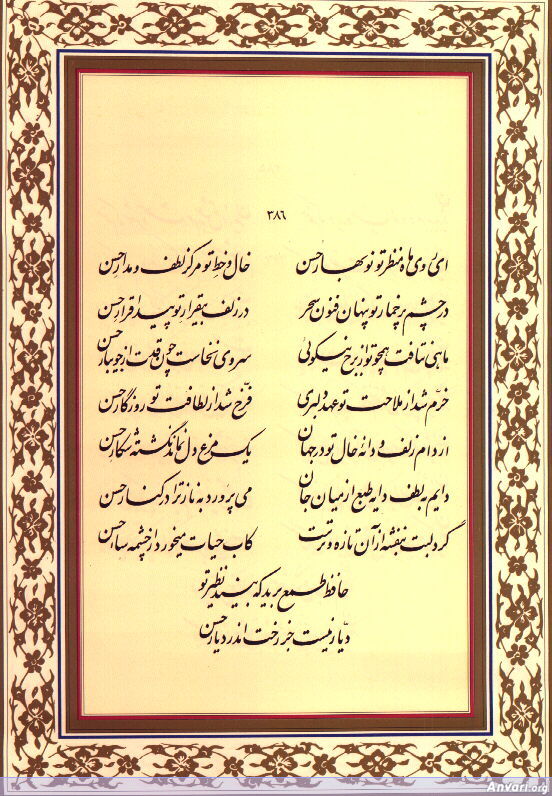 ۳۸۶
ای روی ماه منظر تو نوبهار حسن خال و خط تو مرکز لطف و مدار حسن
در چشم پر خمار تو پنهان فنون سحر در زلف بیقرار تو پیدا قرار حسن
ماهی نتافت همچو تو از برج نیکوئی سروی نخاست چون قدت از جویبار حسن
خرم شد از ملاحت تو عهد دلبری فرّخ شد از لطافت تو روزگار حسن
از دام زلف و دانهٔ خال تو در جهان یک مرغ دل نماند نگشته شکار حسن
دایم به لطف دایهٔ طبع از میان جان می پرورد به ناز ترا در کنار حسن
گرد لبت بنفشه از آن تازه و ترست کاب حیات میخورد از چشمه سار حسن
حافظ طمع برید که بیند نظیر تو
دیّار نیست جز رخت اندر دیار حسن
Anvari.org